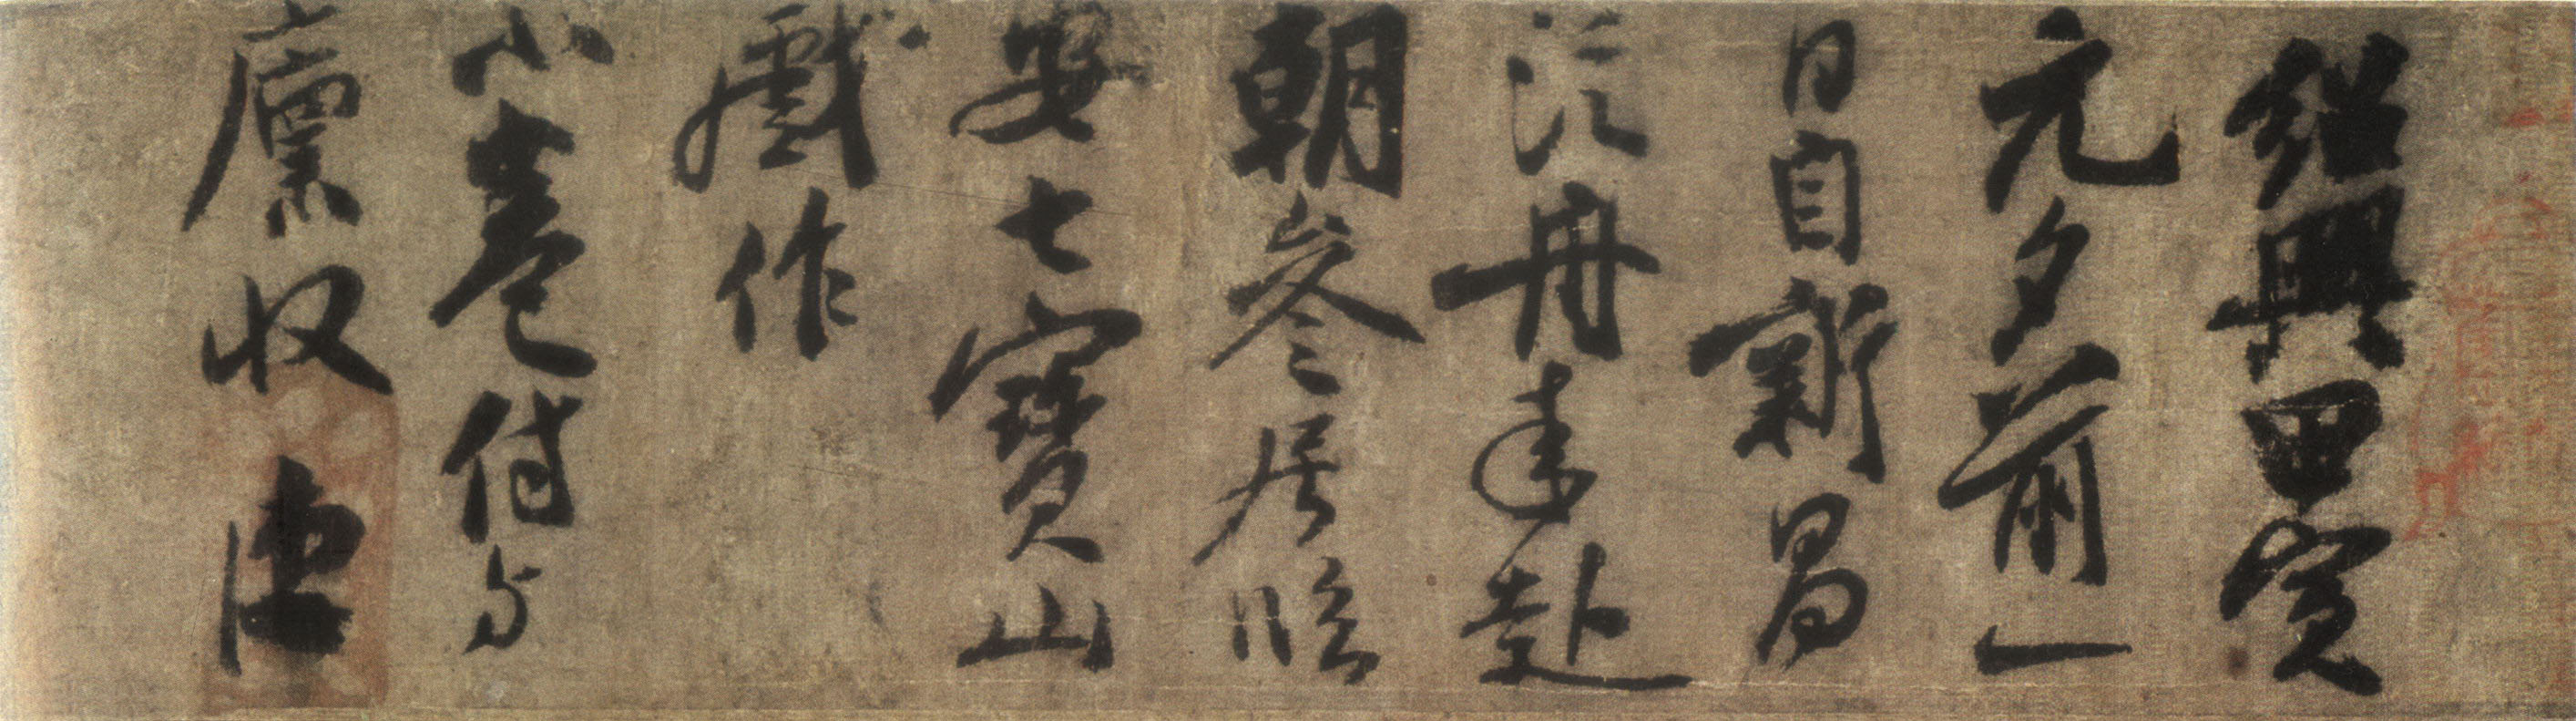 紹興甲寅
元夕前一
日自新昌
泛舟来赴
朝參居臨
安七寶山
戲作
小卷付与
廪收